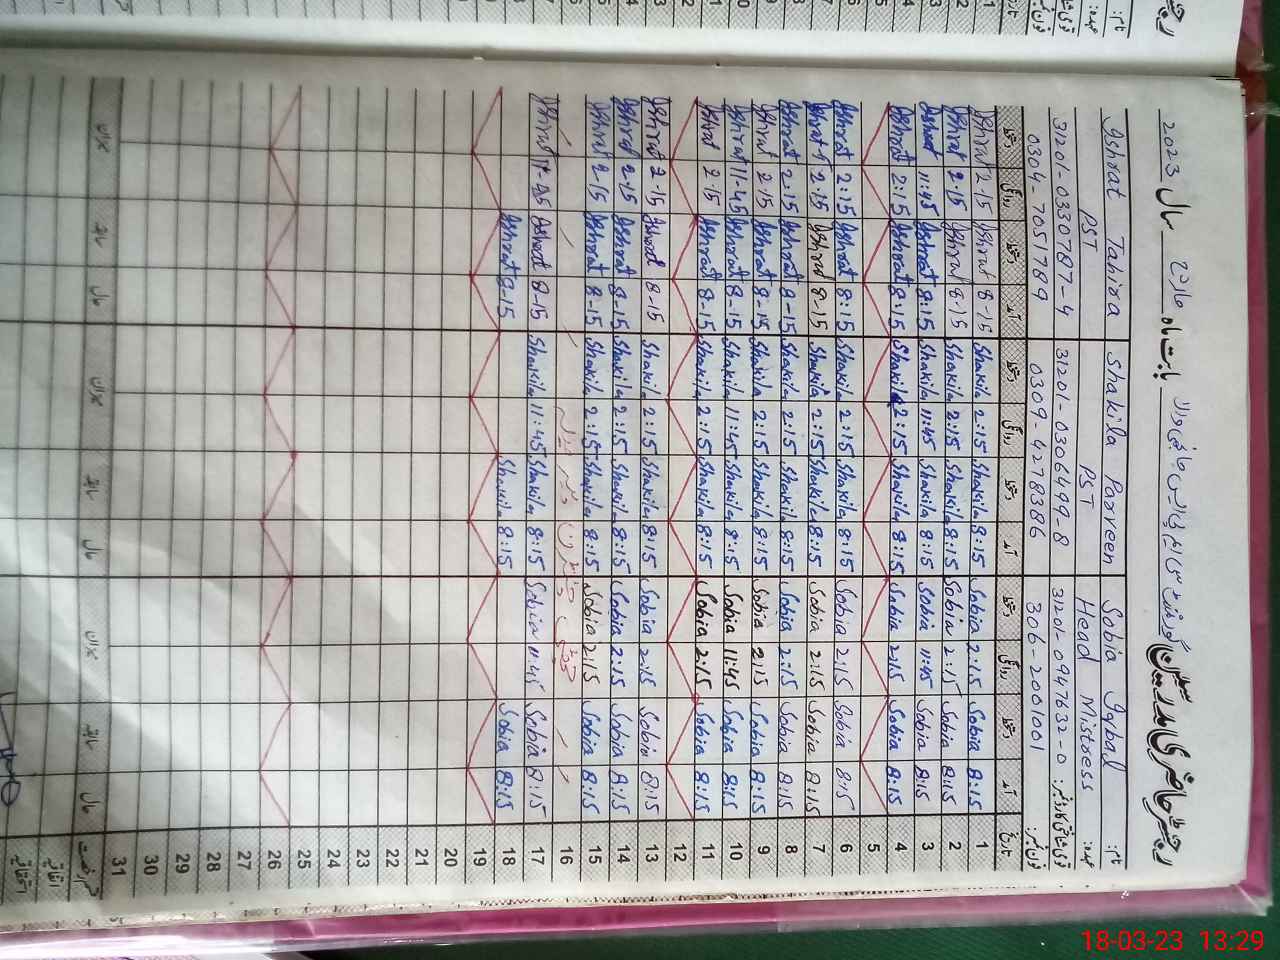 رجسٹر حاضری مدرسین
بابت ماہ مارچ سال 2023
نام: Sobia Iqbal Shakila Parveen Ishrat Tahira
عہدہ: Head Mistress PST PST
قومی شناختی کارڈ نمبر: 31201-0947632-0 31201-0306499-8 31201-0330787-4
فون نمبر: 306-2001001 0309-4278386 0304-7051789
تاریخ آمد دستخط روانگی دستخط آمد دستخط روانگی دستخط آمد دستخط روانگی دستخط
1 8:15 Sobia 2:15 Sobia 8:15 Shakila 2:15 Shakila 8-15 Ishrat 2-15 Ishrat
2 8:15 Sobia 2:15 Sobia 8:15 Shakila 2:15 Shakila 8-15 Ishrat 2-15 Ishrat
3 8:15 Sobia 11:45 Sobia 8:15 Shakila 11:45 Shakila 8:15 Ishrat 11:45 Ishrat
4 8:15 Sobia 2:15 Sobia 8:15 Shakila 2:15 Shakila 8:15 Ishrat 2:15 Ishrat
5
6 8:15 Sobia 2:15 Sobia 8:15 Shakila 2:15 Shakila 8:15 Ishrat 2:15 Ishrat
7 8:15 Sobia 2:15 Sobia 8:15 Shakila 2:15 Shakila 8-15 Ishrat 2-15 Ishrat
8 8:15 Sobia 2:15 Sobia 8:15 Shakila 2:15 Shakila 8-15 Ishrat 2:15 Ishrat
9 8:15 Sobia 2:15 Sobia 8:15 Shakila 2:15 Shakila 8-15 Ishrat 2-15 Ishrat
10 8:15 Sobia 11:45 Sobia 8:15 Shakila 11:45 Shakila 8-15 Ishrat 11-45 Ishrat
11 8:15 Sobia 2:15 Sobia 8:15 Shakila 2:15 Shakila 8-15 Ishrat 2-15 Ishrat
12
13 8:15 Sobia 2:15 Sobia 8:15 Shakila 2:15 Shakila 8-15 Ishrat 2-15 Ishrat
14 8:15 Sobia 2:15 Sobia 8:15 Shakila 2:15 Shakila 8-15 Ishrat 2-15 Ishrat
15 8:15 Sobia 2:15 Sobia 8:15 Shakila 2:15 Shakila 8-15 Ishrat 2-15 Ishrat
16
17 8:15 Sobia 11:45 Sobia 8:15 Shakila 11:45 Shakila 8-15 Ishrat 11-45 Ishrat
18 8:15 Sobia 8:15 Shakila 8-15 Ishrat
19
20
21
22
23
24
25
26
27
28
29
30
31
قسم رخصت حال سابقہ میزان حال سابقہ میزان حال سابقہ میزان
اتفاقیہ
18-03-23 13:29